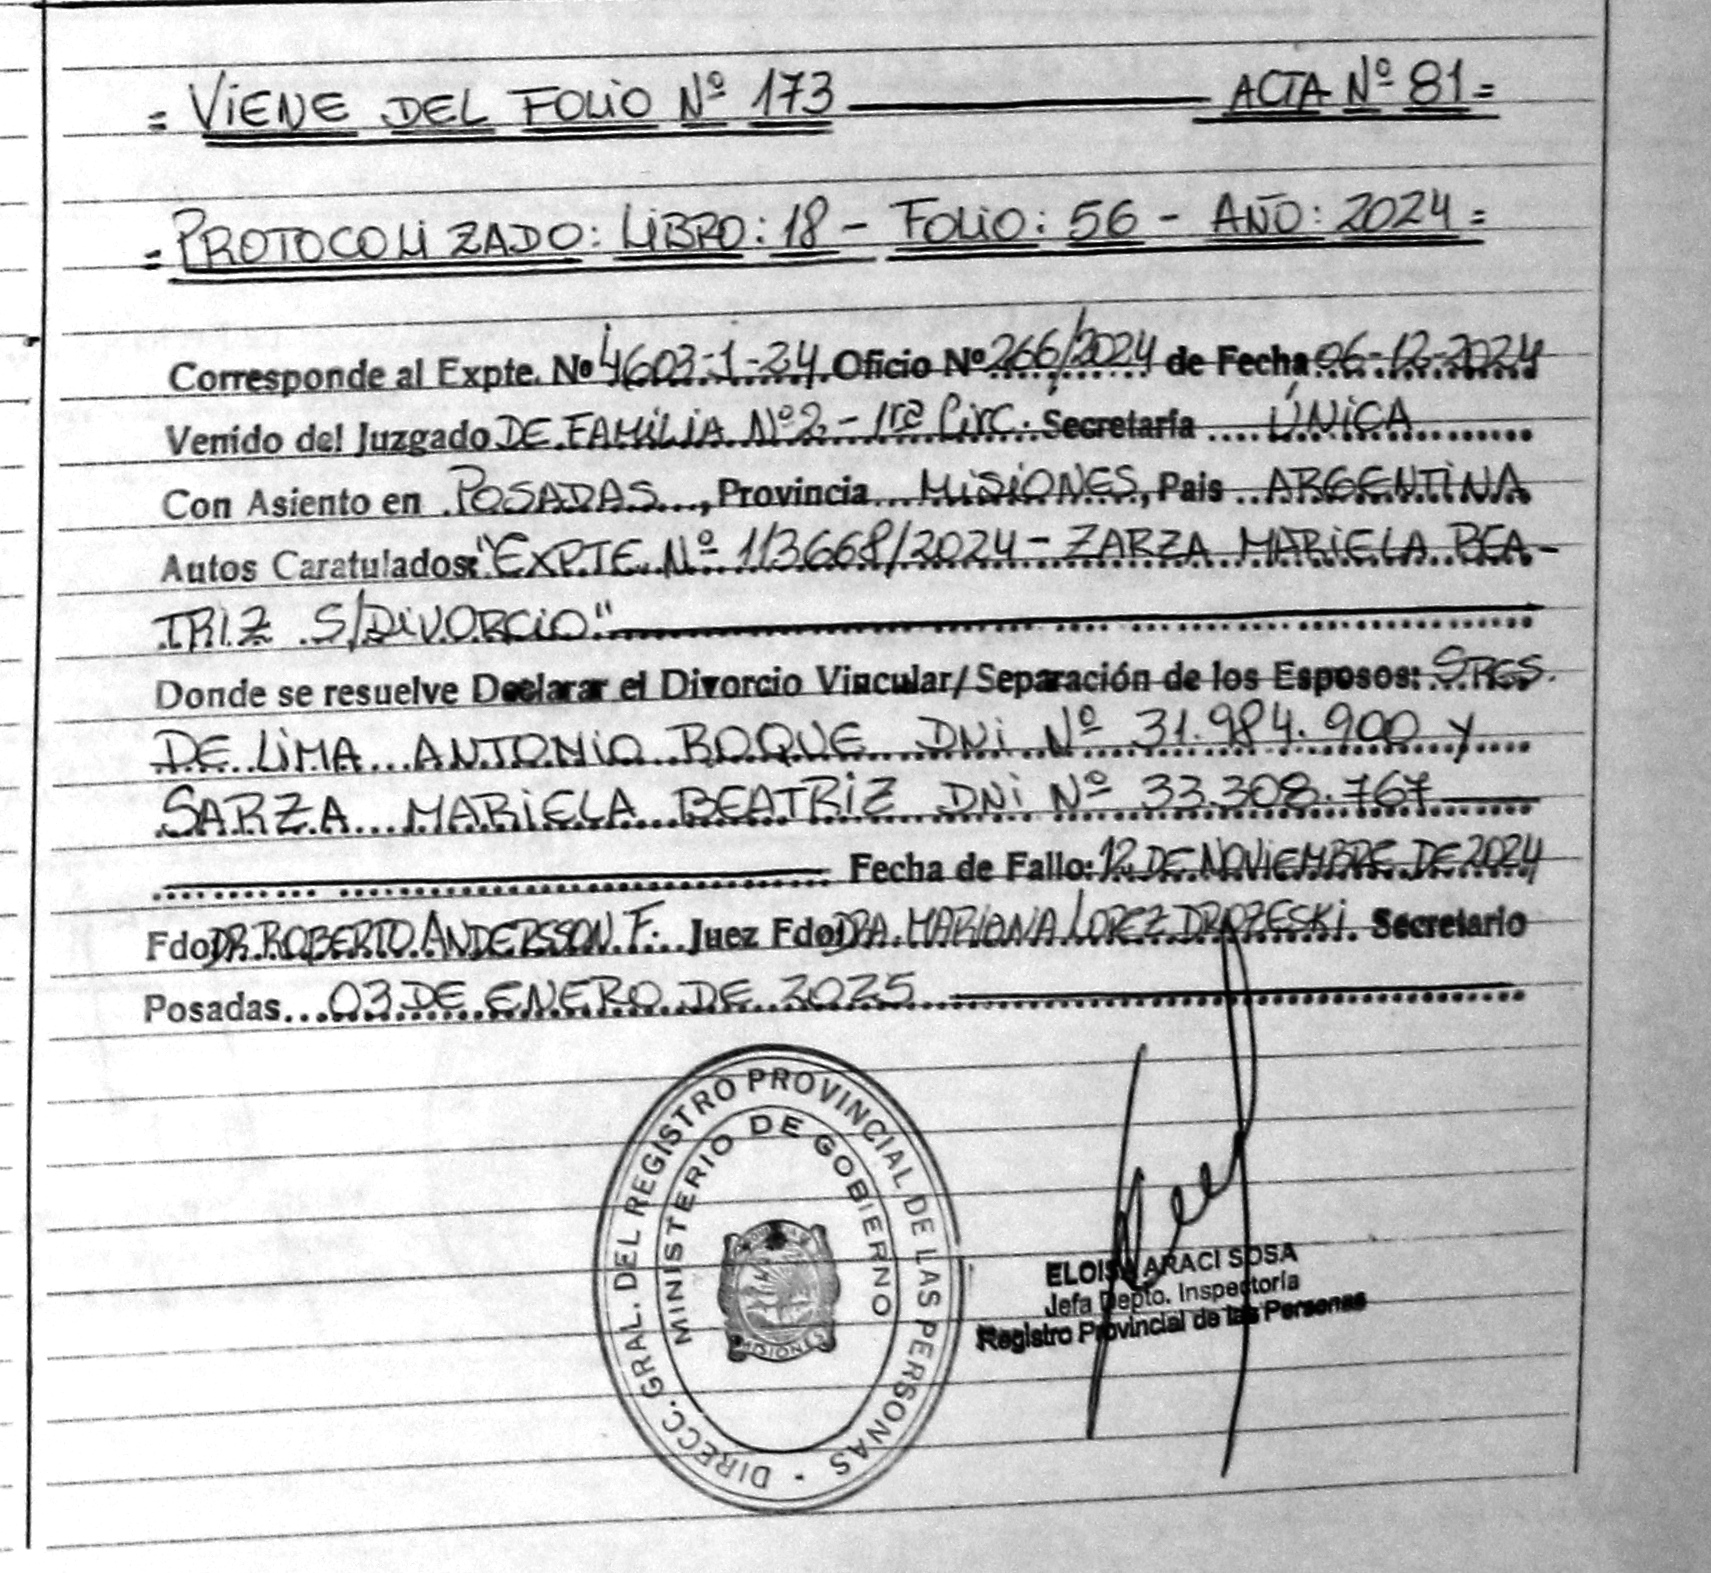 = VIENE DEL FOLIO Nº 173 ACTA Nº 81 =
= PROTOCOLIZADO: LIBRO: 18 - FOLIO: 56 - AÑO: 2024 =
Corresponde al Expte. Nº 4603-1-24 Oficio Nº 266/2024 de Fecha 06-12-2024
Venido del Juzgado DE FAMILIA Nº 2 - 1ra Circ. Secretaría ÚNICA
Con Asiento en POSADAS, Provincia MISIONES, Pais ARGENTINA
Autos Caratulados: "EXPTE. Nº 113668/2024 - ZARZA MARIELA BEA-
TRIZ S/DIVORCIO"
Donde se resuelve Declarar el Divorcio Vincular/Separación de los Esposos: SRES.
DE LIMA ANTONIO ROQUE DNI Nº 31.984.900 y
SARZA MARIELA BEATRIZ DNI Nº 33.308.767
Fecha de Fallo: 12 DE NOVIEMBRE DE 2024
Fdo DR. ROBERTO ANDERSSON F. Juez Fdo: DRA. MARIANA LOPEZ DROZESKI. Secretario
Posadas 03 DE ENERO DE 2025
DIRECC. GRAL. DEL REGISTRO PROVINCIAL DE LAS PERSONAS
MINISTERIO DE GOBIERNO
MISIONES
ELOISA ARACI SOSA
Jefa Depto. Inspectoría
Registro Provincial de las Personas